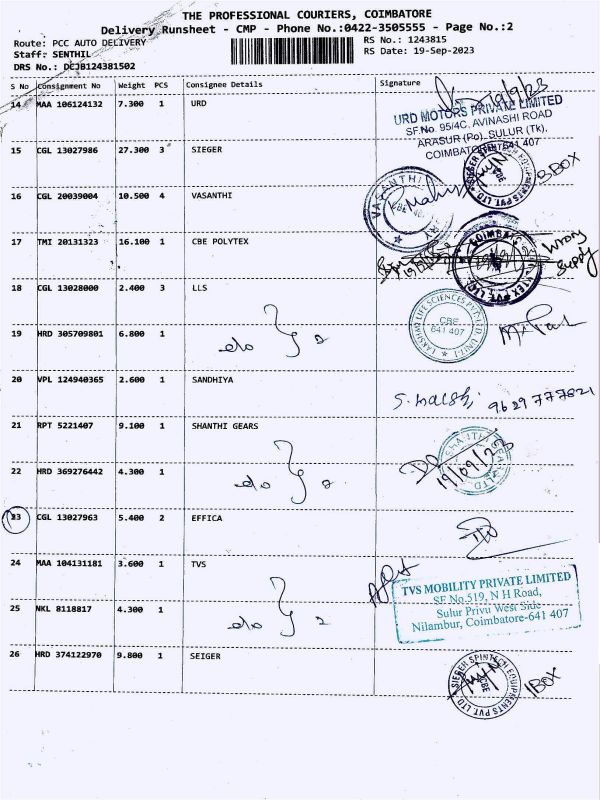 THE PROFESSIONAL COURIERS, COIMBATORE
Delivery Runsheet - CMP - Phone No.:0422-3505555 - Page No.:2
Route: PCC AUTO DELIVERY
RS No.: 1243815
Staff: SENTHIL
RS Date: 19-Sep-2023
DRS No.: DCJB124381502
S No Consignment No Weight PCS Consignee Details Signature
14 MAA 106124132 7.300 1 URD
19/9/23
URD MOTORS PRIVATE LIMITED
SF.No. 95/4C, AVINASHI ROAD
ARASUR (Po), SULUR (Tk),
COIMBATORE-641 407
15 CGL 13027986 27.300 3 SIEGER
SIEGER SPINTECH EQUIPMENTS PVT. LTD.
CBE
3BOX
16 CGL 20039004 10.500 4 VASANTHI
VASANTHI
17 TMI 20131323 16.100 1 CBE POLYTEX
Wrong
Supply
18 CGL 13028000 2.400 3 LLS
LAKSHMI LIFE SCIENCES PVT LTD, UNIT-I
CBE
641 407
19 HRD 305709801 6.800 1
do } 2
20 VPL 124940365 2.600 1 SANDHIYA
9629777821
21 RPT 5221407 9.100 1 SHANTHI GEARS
19/09/23
22 HRD 369276442 4.300 1
do } 2
23 CGL 13027963 5.400 2 EFFICA
24 MAA 104131181 3.600 1 TVS
TVS MOBILITY PRIVATE LIMITED
SF No.519, N H Road,
Sulur Privu West Side
Nilambur, Coimbatore-641 407
25 NKL 8118817 4.300 1
do } 2
26 HRD 374122970 9.800 1 SEIGER
SIEGER SPINTECH EQUIPMENTS PVT. LTD.
CBE
1BOX